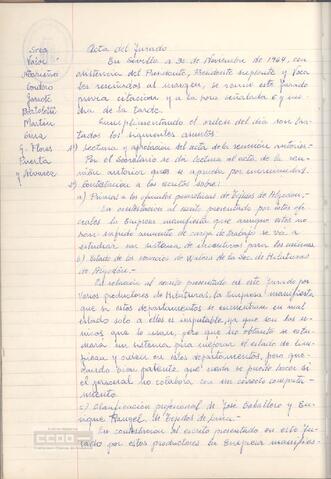 Sres.
Acta del Jurado
En Sevilla a 30 de Noviembre de 1964, con
asistencia del Presidente, Presidente suplente y Voca
les reseñados al margen, se reune este Jurado
previa citación y a la hora señalada
dia de la tarde.
Cordero
Jarote
Martin
G. Flores
Puerta
y Alvarez
Cumplimentando el orden del dia son tra-
tados los siguientes asuntos:
1º) Lectura y aprobación del acta de la reunión anterior.-
Por el Secretario se da lectura al acta de la reu-
nión anterior que es aprobada por unanimidad.
2º) Contestacion a los escritos sobre:
a) Primas a los oficiales de Tejidos de Algodon.-
En contestación al escrito presentado por estos ofi-
ciales la Empresa manifiesta que aunque estos no
han sufrido aumento de carga de trabajo se va a
estudiar un sistema de incentivos para los mismos.
b) Estado de los servicios de Water de la Sec. de Hilaturas
de Algodón.-
En relación al escrito presentado a este Jurado por
varios productores de Hilaturas, la Empresa manifiesta
que si estos departamentos se encuentran en mal
estado solo a ellos es imputable, ya que son los u-
nicos que lo usan, pero que no obstante se estu-
diará un sistema para mejorar el estado de lim-
pieza y orden en estos departamentos, pero que-
dando bien patente que nada se puede hacer si
el personal no colabora con un correcto comporta-
miento.
c) Clasificación profesional de Jose Caballero y En-
rique Rangel, de Tejidos de Lana.-
En contestacion al escrito presentado en este Ju-
rado por estos productores la Empresa manifies-
CCOO